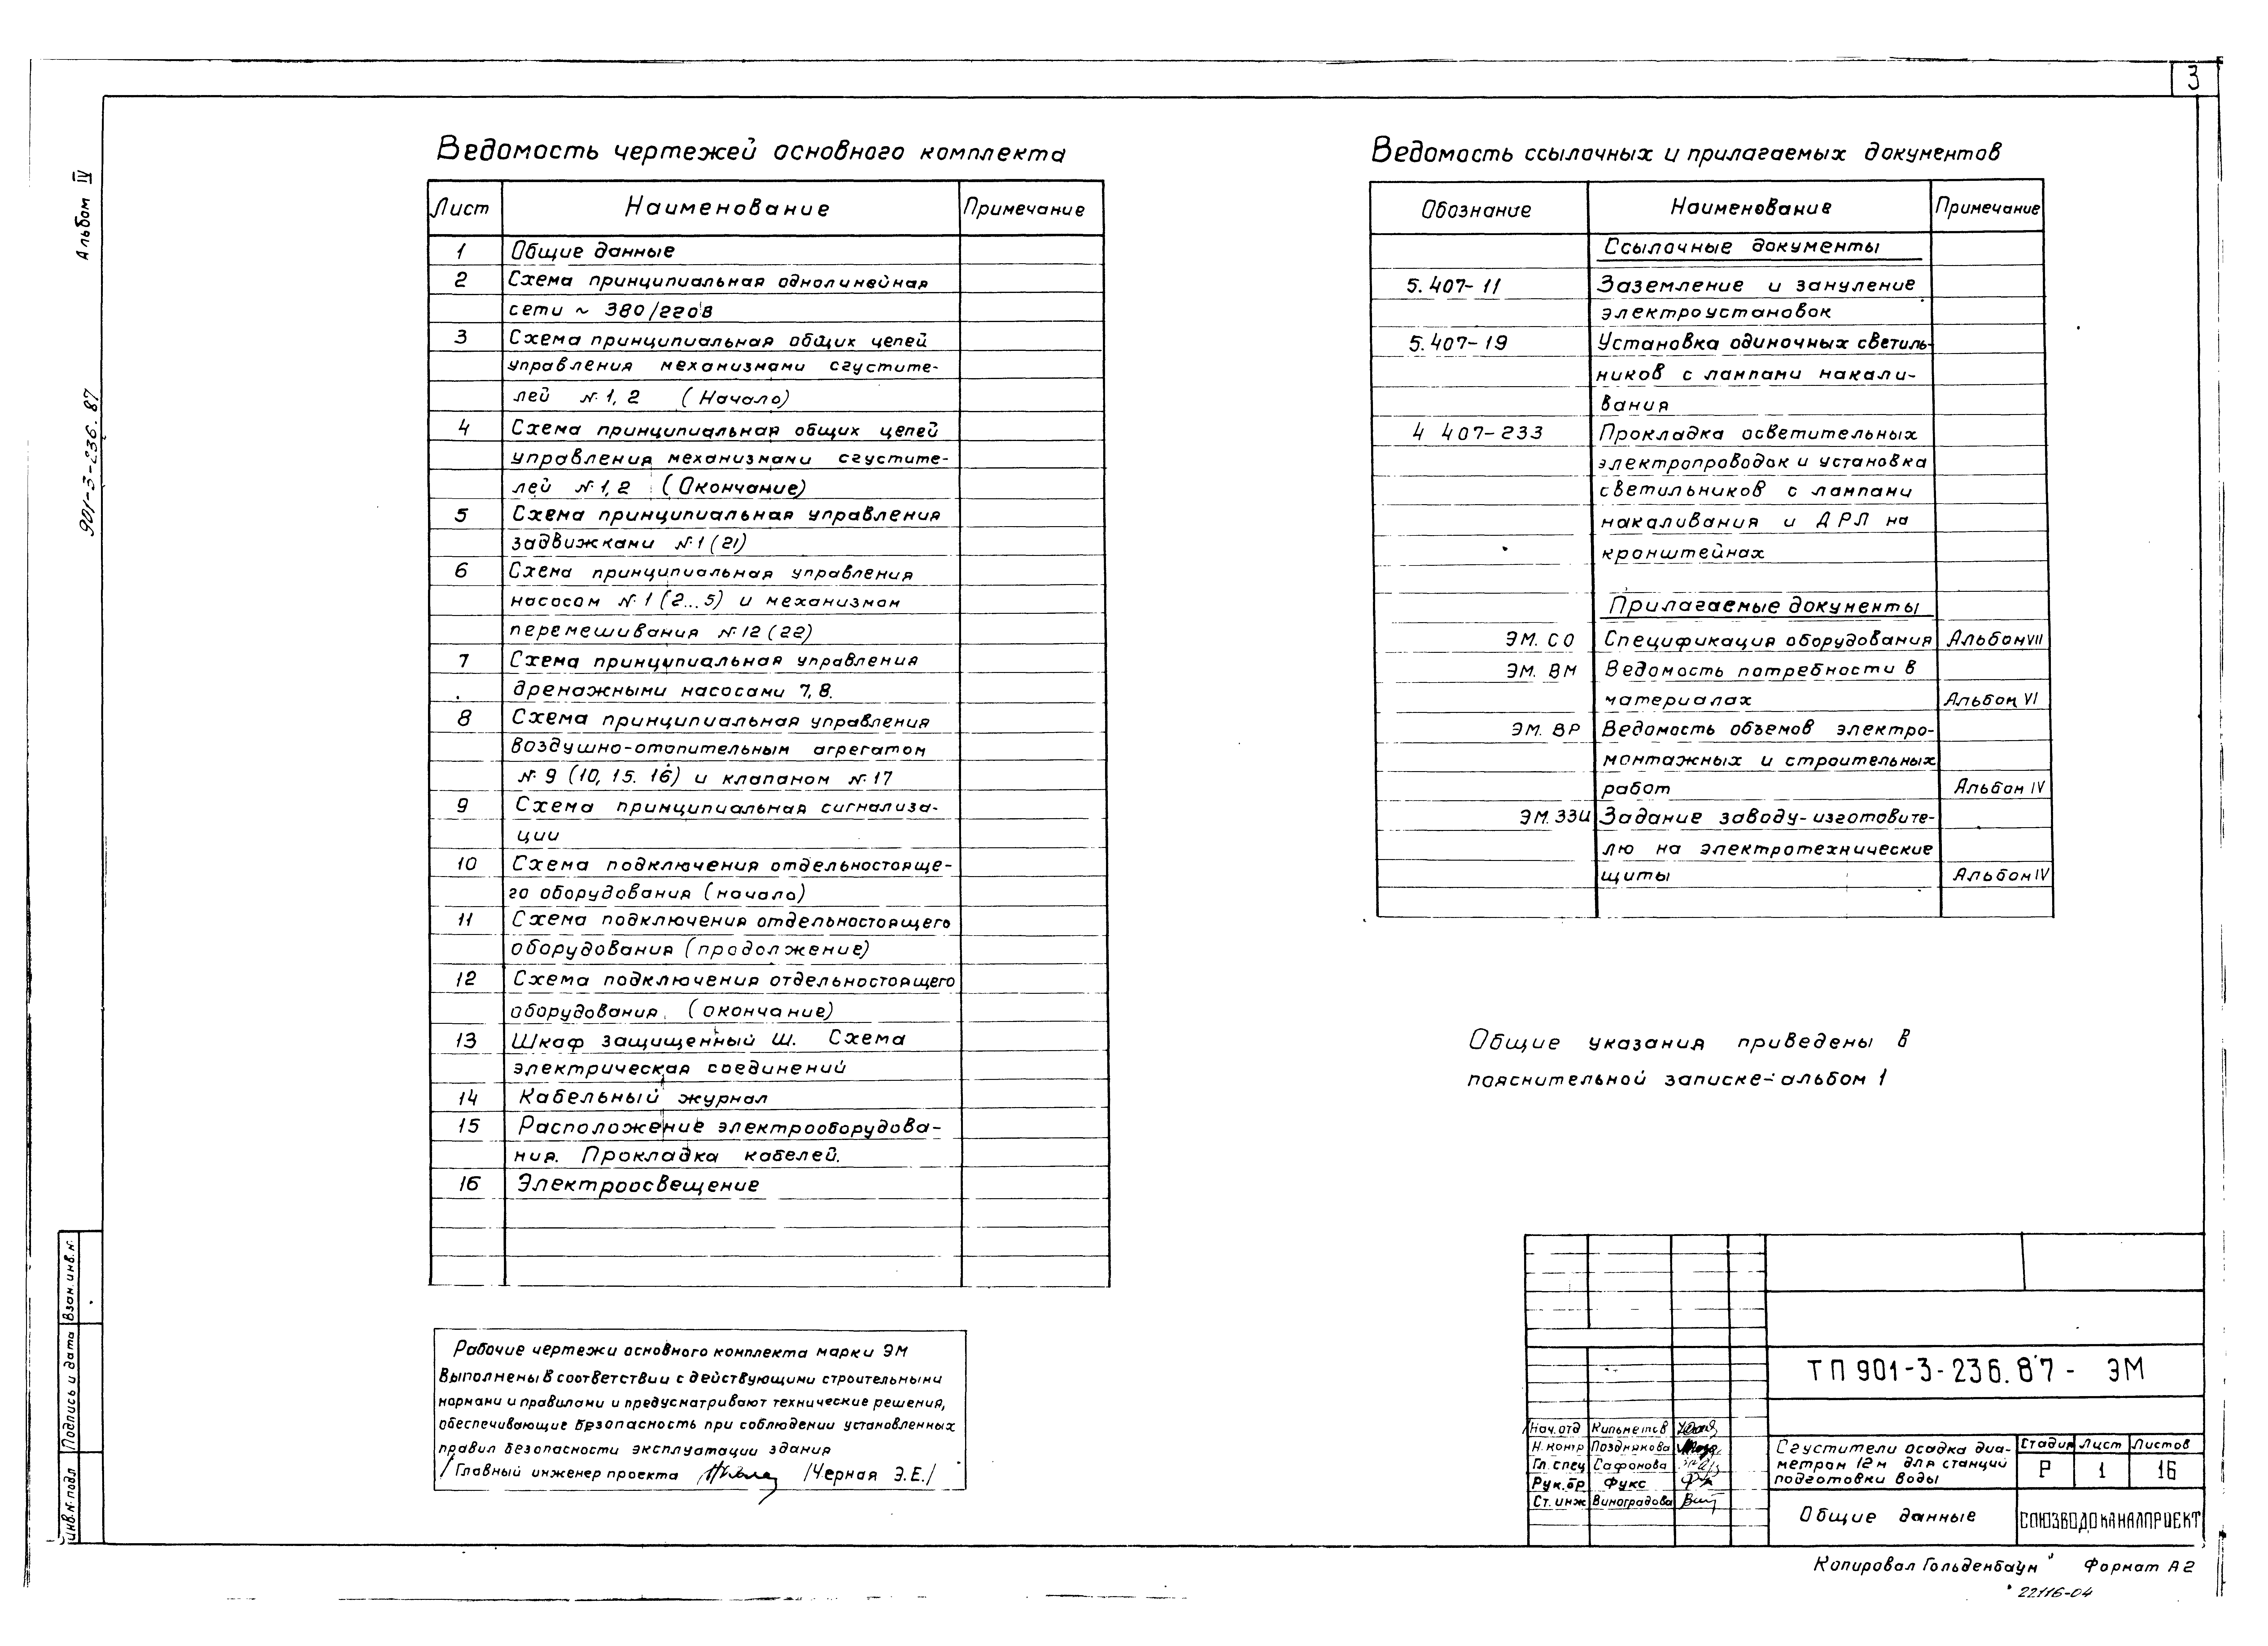 3
Альбом IV
901-3-236.87
Ведомость чертежей основного комплекта
Лист Наименование Примечание
1 Общие данные
2 Схема принципиальная однолинейная
сети ~ 380/220В
3 Схема принципиальная общих цепей
управления механизмами сгустите-
лей №1, 2 (Начало)
4 Схема принципиальная общих цепей
управления механизмами сгустите-
лей №1, 2 (Окончание)
5 Схема принципиальная управления
задвижками №1 (21)
6 Схема принципиальная управления
насосом №1 (2...5) и механизмом
перемешивания №12 (22)
7 Схема принципиальная управления
дренажными насосами 7, 8.
8 Схема принципиальная управления
воздушно-отопительным агрегатом
№9 (10, 15. 16) и клапаном №17
9 Схема принципиальная сигнализа-
ции
10 Схема подключения отдельностояще-
го оборудования (начало)
11 Схема подключения отдельностоящего
оборудования (продолжение)
12 Схема подключения отдельностоящего
оборудования (окончание)
13 Шкаф защищенный Ш. Схема
электрическая соединений
14 Кабельный журнал
15 Расположение электрооборудова-
ния. Прокладка кабелей.
16 Электроосвещение
Рабочие чертежи основного комплекта марки ЭМ
Выполнены в соответствии с действующими строительными
нормами и правилами и предусматривают технические решения,
обеспечивающие безопасность при соблюдении установленных
правил безопасности эксплуатации здания
/Главный инженер проекта /Черная Э.Е./
Ведомость ссылочных и прилагаемых документов
Обознание Наименование Примечание
Ссылочные документы
5.407-11 Заземление и зануление
электроустановок
5.407-19 Установка одиночных светиль-
ников с лампами накали-
вания
4 407-233 Прокладка осветительных
электропроводок и установка
светильников с лампами
накаливания и ДРЛ на
кронштейнах
Прилагаемые документы
ЭМ. СО Спецификация оборудования Альбом VII
ЭМ. ВМ Ведомость потребности в
материалах Альбом VI
ЭМ. ВР Ведомость объемов электро-
монтажных и строительных
работ Альбом IV
ЭМ.ЗЗИ Задание заводу-изготовите-
лю на электротехнические
щиты Альбом IV
Общие указания приведены в
пояснительной записке-альбом 1
Взам.инв.№
Подпись и дата
инв.№ подл
ТП 901-3-236.87- ЭМ
Нач.отд Кильметов
Н.контр Позднякова
Гл.спец Сафонова
Рук.бр Фукс
Ст.инж Виноградова
Сгустители осадка диа-
метром 12м для станций
подготовки воды
Стадия Лист Листов
Р 1 16
Общие данные
СОЮЗВОДОКАНАЛПРОЕКТ
Копировал Гольденбаум Формат А2
22116-04